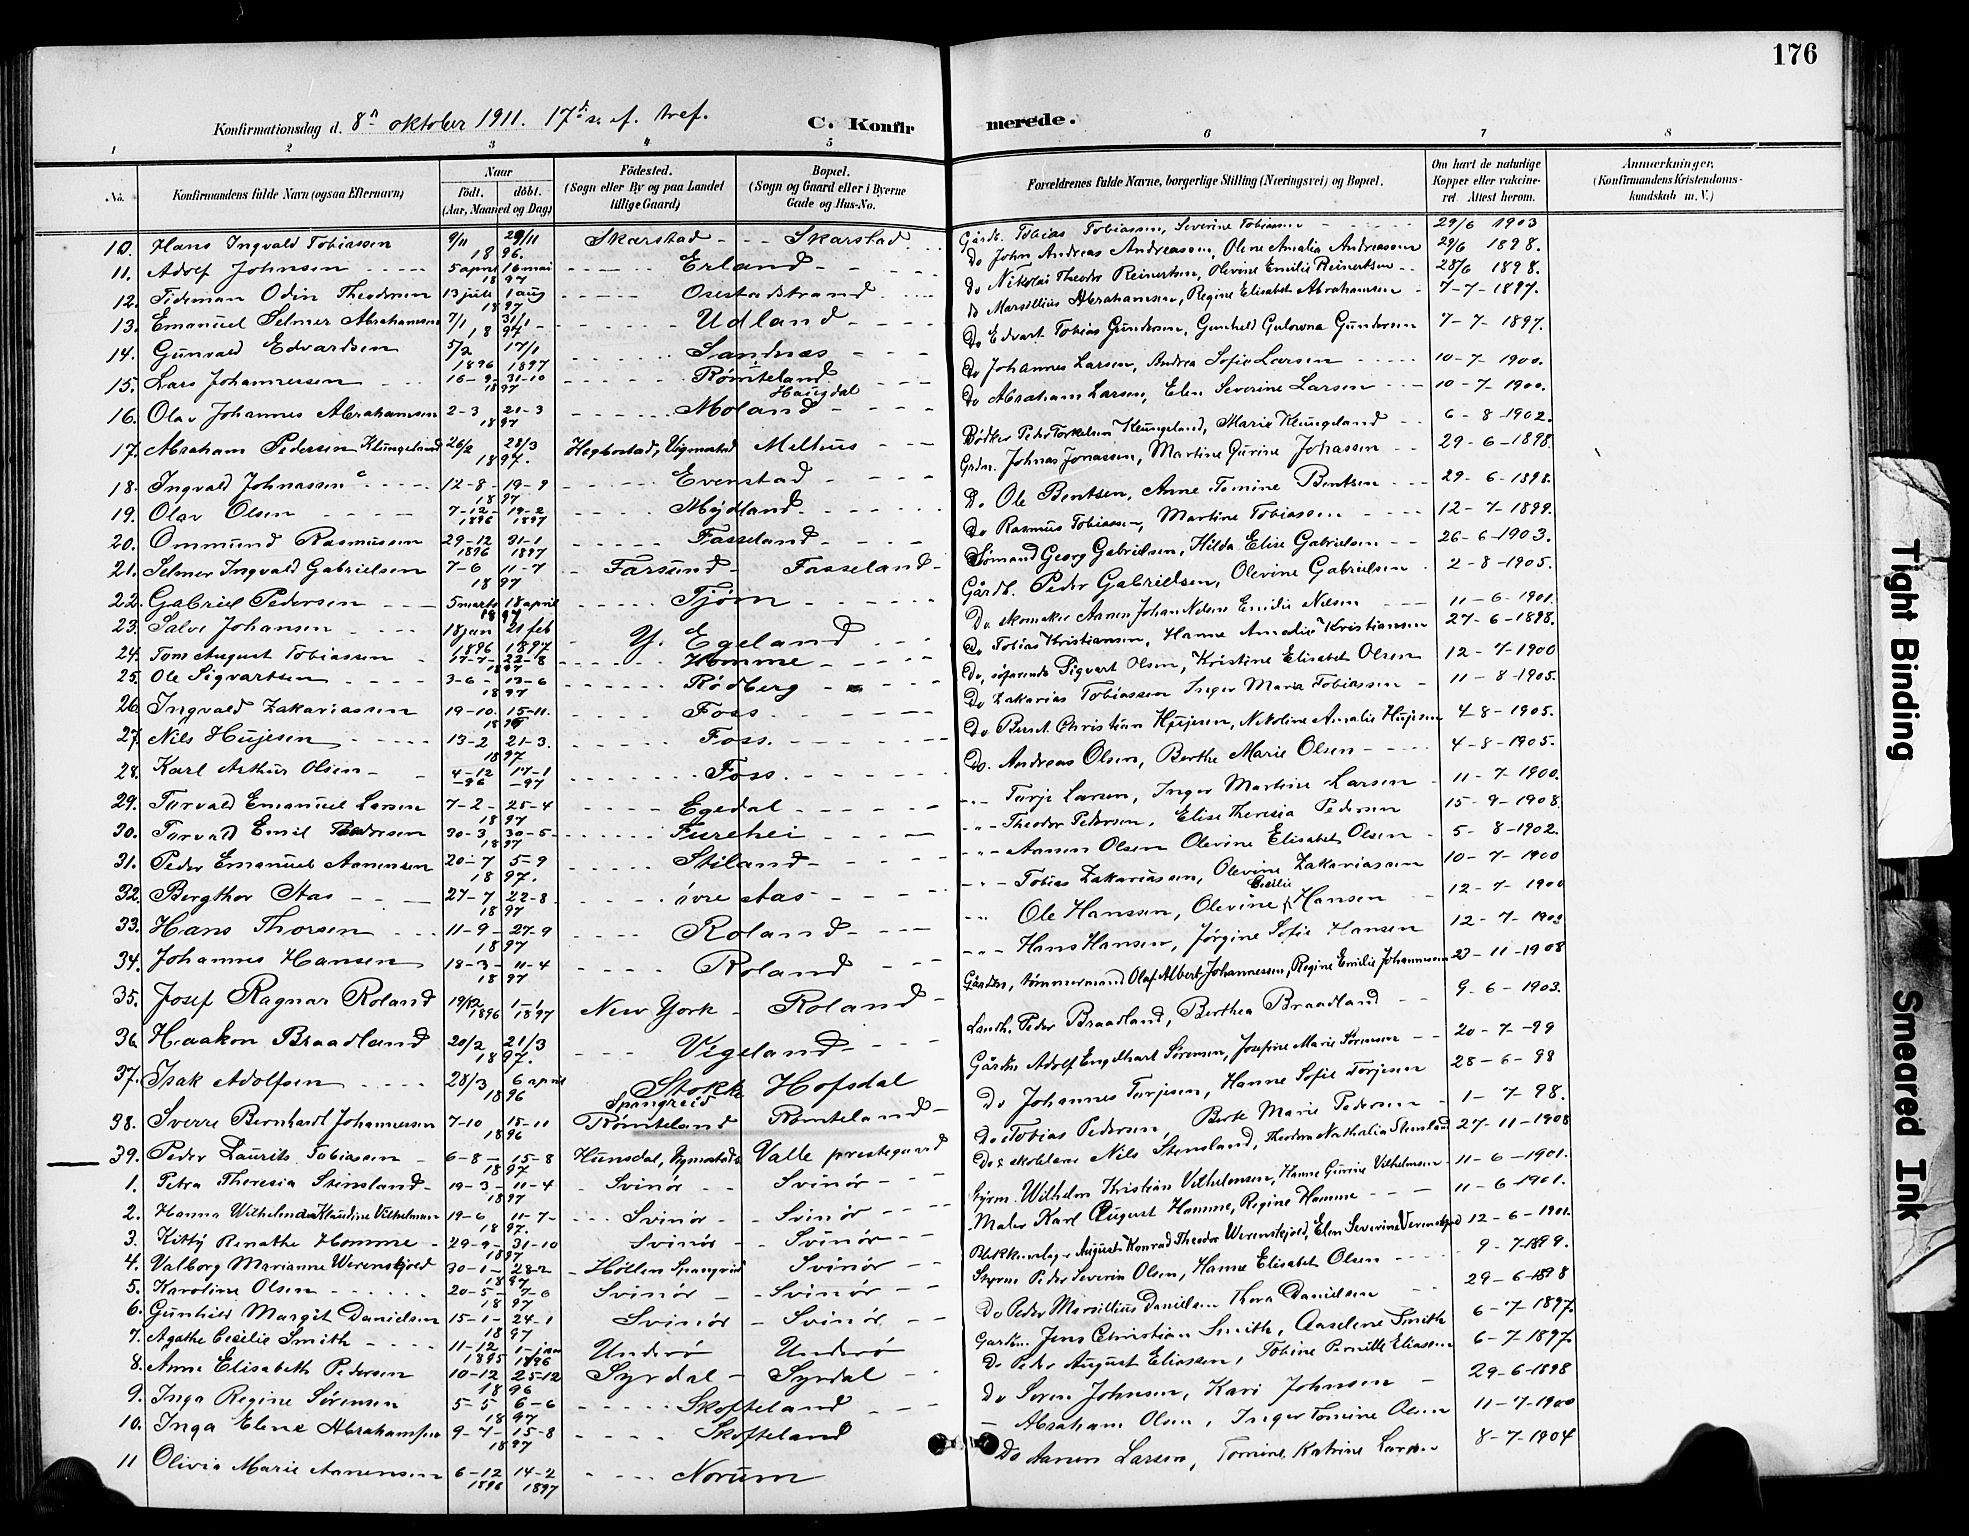 176
Konfirmationsdag d. 8n oktober 1911. 17d s. ef. tref. C. Konfir merede.
1 2 3 4 5 6 7 8
No. Konfirmandens fulde Navn (ogsaa Efternavn) Naar födt. döbt. (Aar, Maaned og Dag) Födested. (Sogn eller By og paa Landet tillige Gaard) Bopæl. (Sogn og Gaard eller i Byerne Gade og Hus-No. Forældrenes fulde Navne, borgerlige Stilling (Næringsvei) og Bopæl. Om havt de naturlige Kopper eller vaccineret. Attest herom. Anmærkninger, (Konfirmandens Kristendomskundskab m. V.)
10. Hans Ingvald Tobiassen 9/11 29/11 1896. Skarstad - - - Skarstad Gårdb. Tobias Tobiassen, Severine Tobiassen 29/6 1903
11. Adolf Johnsen 5 april 16 mai 1897 Erland Do John Andreas Andreassen, Olene Amalia Andreassen 29/6 1898.
12. Tideman Odin Theodorsen 13 juli 1 aug 1897 Osestadstrand Do Nikolai Theodor Reinertsen, Olevine Emilie Reinertsen 28/6 1898.
13. Emanuel Selmer Abrahamsen 7/1 31/1 1897 Udland Do Marsillius Abrahamsen, Regine Elisabet Abrahamsen 7-7-1897.
14. Gunvald Edvardsen 5/2 1896 17/1 1897 Sandnæs Do Edvart Tobias Gundersen, Gunhild Gulowna Gundersen 7-7-1897.
15. Lars Johannessen 16-9 31-10 1897 Rømteland Haugdal Do Johannes Larsen, Andrea Sofie Larsen 10-7-1900.
16. Olav Johannes Abrahamsen 2-3 21-3 1897 Moland Do Abraham Larsen, Elen Severine Larsen 10-7-1900.
17. Abraham Pedersen Klungeland 26/2 28/3 1897. Hegbostad, Vigmostad Melhus Bødker Peter Torkelsen Klungeland, Marie Klungeland 6-8-1902.
18. Ingvald Johnassen 12-8 19-9 1897 Evenstad Grdm. Johnas Jonassen, Martine Gurine Johassen 29-6-1898
19. Olav Olsen 7-12 1896 19-2 1897 Mydland Do Ole Bentsen, Anne Tomine Bentsen 29-6-1898.
20. Ommund Rasmussen 29-12 1896 31-1 1897 Fasseland Do Rasmus Tobiassen, Martine Tobiassen 12-7-1899.
21. Selmer Ingvald Gabrielsen 7-6 11-7 1897 Farsund Fasseland Sømand Georg Gabrielsen, Hilda Elise Gabrielsen 26-6-1903.
22. Gabriel Pedersen 5 marts 18 april 1897 Tjøm Gårdb. Peder Gabrielsen, Olevine Gabrielsen 2-8-1905.
23. Salve Johansen 18 jan 1896 21 feb 1897 Y. Egeland Do skomaker Aanen Johan Nelsen Emilie Nelsen 11-6-1901.
24. Tom August Tobiassen 17-7 22-8 1897 Homme Do Tobias Kristiansen, Hanne Amalie Kristiansen 27-6-1898.
25. Ole Sigvartsen 3-6 13-6 1897 Rødberg Do, søfarende Sigvart Olsen, Kristine Elisabet Olsen 12-7-1900
26. Ingvald Zakariassen 19-10. 15-11. Foss Do Zakarias Tobiassen Inger Maria Tobiassen 11-8-1905.
27. Nils Hujesen 13-2 21-3. 1897 Foss. Do Bernt Christian Hujesen, Nikoline Amalie Hujesen 4-8-1905.
28. Karl Arthur Olsen 4-12 -96 17-1 -97 Foss. Do. Andreas Olsen, Berthe Marie Olsen 4-8-1905.
29. Torvald Emanuel Larsen 7-2 25-4 1897 Egedal Tarje Larsen, Inger Martine Larsen 11-7-1900.
30. Torvald Emil Theodorsen 30-3 30-5 1897 Furehei Theodor Pedersen, Elise Theresia Pedersen 15-9-1908.
31. Peder Emanuel Aanensen 20-7 5-9 1897. Stiland Aanen Olsen Olevine Elisabet Olsen 5-8-1902.
32. Bergthor Aas 27-7 22-8 1897 øvre Aas Tobias Zakariassen, Olevine Zakariassen 10-7-1900
33. Hans Thorsen 11-9 27-9 1897 Roland Ole Hanssen, Olevine Cecilie Hansen 12-7-1900
34. Johannes Hansen 18-3 11-4 1897 Roland Hans Hansen, Jørgine Sofie Hansen 12-7-1903
35. Josef Ragnar Roland 19/12 1896 1-1 1897 New York Roland Gårdbr., tømmermand Olaf Albert Johannessen, Regine Emilie Johannessen 23-11-1908
36. Haakon Braadland 20/2 21/3 1897. Vigeland Landh. Peder Braadland, Berthea Braadland 9-6-1903.
37. Isak Adolfsen 28/3 6 april 1896 Stokke Spangreid Hofsdal Gårdbr Adolf Engelhart Sørensen, Josefine Marie Sørensen 20-7-99
38. Sverre Bernhard Johannessen 7-10 15-11 1896 Rømteland Rømteland Do Johannes Tarjesen, Hanne Sofie Torjesen 28-6-98
39. Peder Laurits Tobiassen 6-8 15-8 1897 Hunsdal, Vigmostad Valle prestegaard Do Tobias Pedersen, Berte Marie Pedersen 1-7-98.
1. Petra Theresia Stensland 19-3 11-4 1897 Svinør Svinør Do & skolelærer Nils Stensland, Theodora Nathalia Stensland 27-11-1908
2. Hanna Wilhelmine Klaudine Vilhelmsen 19-6 11-7 1897. Svinør Svinør Styrm. Wilhelm Kristian Vilhelmsen, Hanne Gurine Vilhelmsen 11-6-1901.
3. Kitty Renathe Homme 29-9 31-10 1897 Svinør Svinør Maler Karl August Homme, Regine Homme 11-6-1901.
4. Valborg Marianne Werenskjold 30-1 28-2 1897 Høllen Spangreid Svinør Blikkenslager August Konrad Theodor Werenskjold, Elen Severine Verenskjold 12-6-1901.
5. Karoline Olsen 20-5 7-6 1897 Svinør Svinør Styrm Peder Severin Olsen, Hanne Elisabet Olsen 9-7-1899.
6. Gunhild Margit Danielsen 15-1 24-1 1897 Svinør Svinør Do Peder Marsillius Danielsen Thora Danielsen 29-6-1898
7. Agathe Cecilie Smith 11-12 1895 1-jan 1896 Underø Underø Gardm. Jens Christian Smith, Aaselene Smith 6-7-1897.
8. Anne Elisabeth Pedersen 10-12 25-12 1896 Syrdal Syrdal Do Peder August Eliassen, Tobine Pernille Eliassen 6-7-1897.
9. Inga Regine Sørensen 5-5 6-6 1897 Skofteland Do Soren Johnsen, Kari Johnsen 29-6-1898
10. Inga Elene Abrahamsen 9-7 15-8 1897 Skofteland Abraham Olsen, Inger Tomine Olsen 11-7-1900
11 Olivia Marie Aanensen 6-12 1896 14-2 1897 Norum Do Aanen Larsen, Tomine Katrine Larsen 8-7-1904
Tight Binding
Smeared Ink